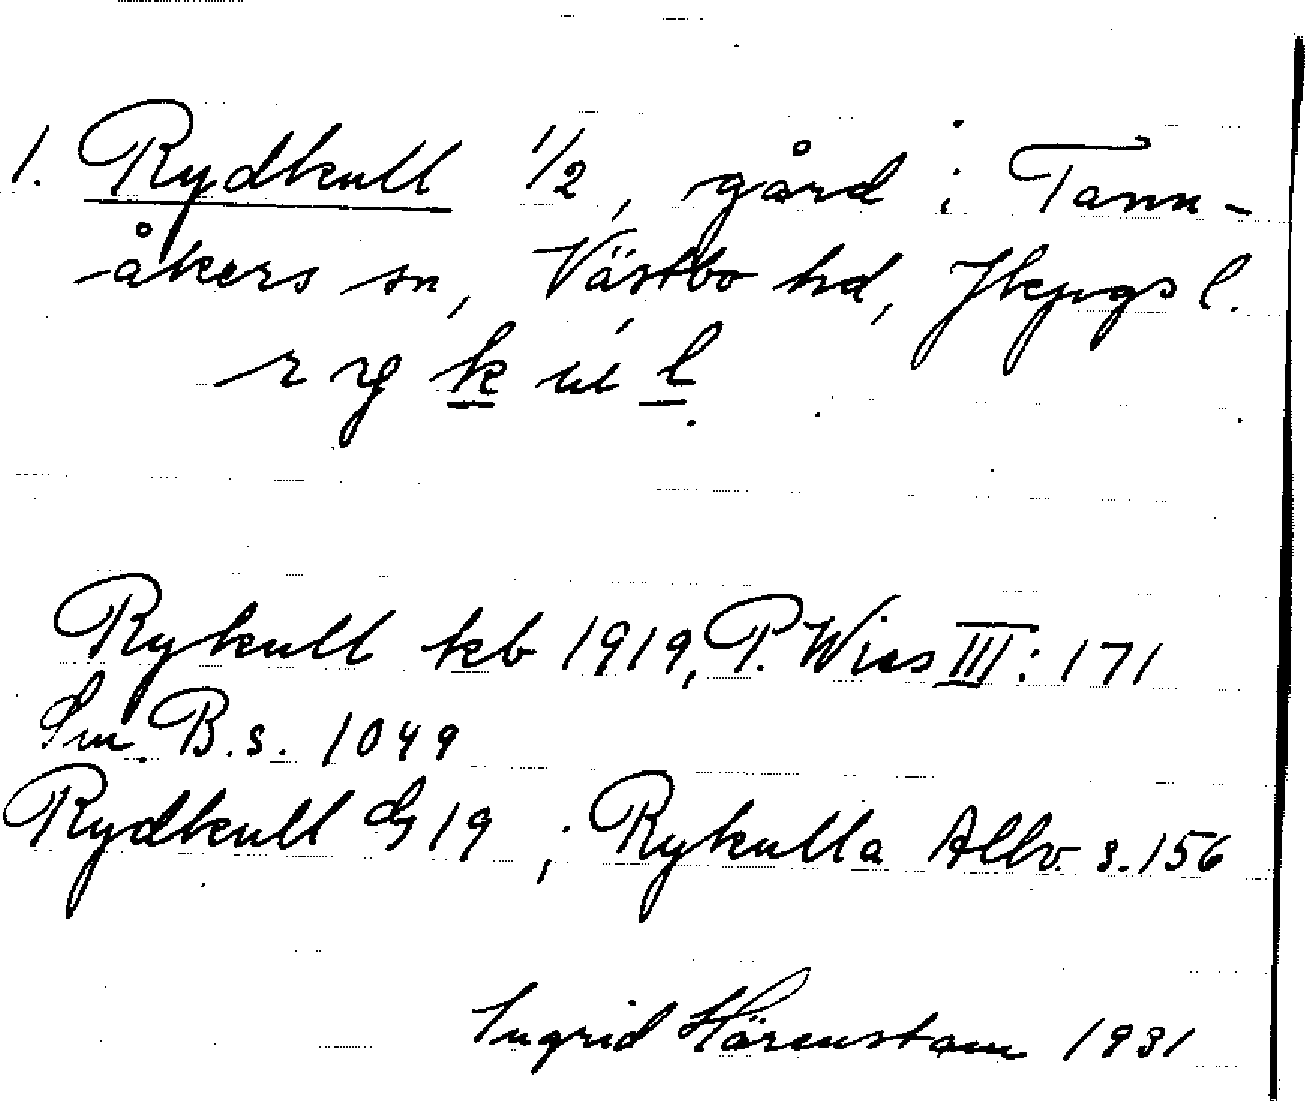 1. Rydkull 1/2, gård i Tann-
åkers sn, Västbo hd, Jkpgs l.
r y k u l
Rykull kb 1919, P. Wies III: 171
Sm. B. s. 1049
Rydkull G 19, Rykulla Allv. s. 156
Ingrid Härenstam 1931